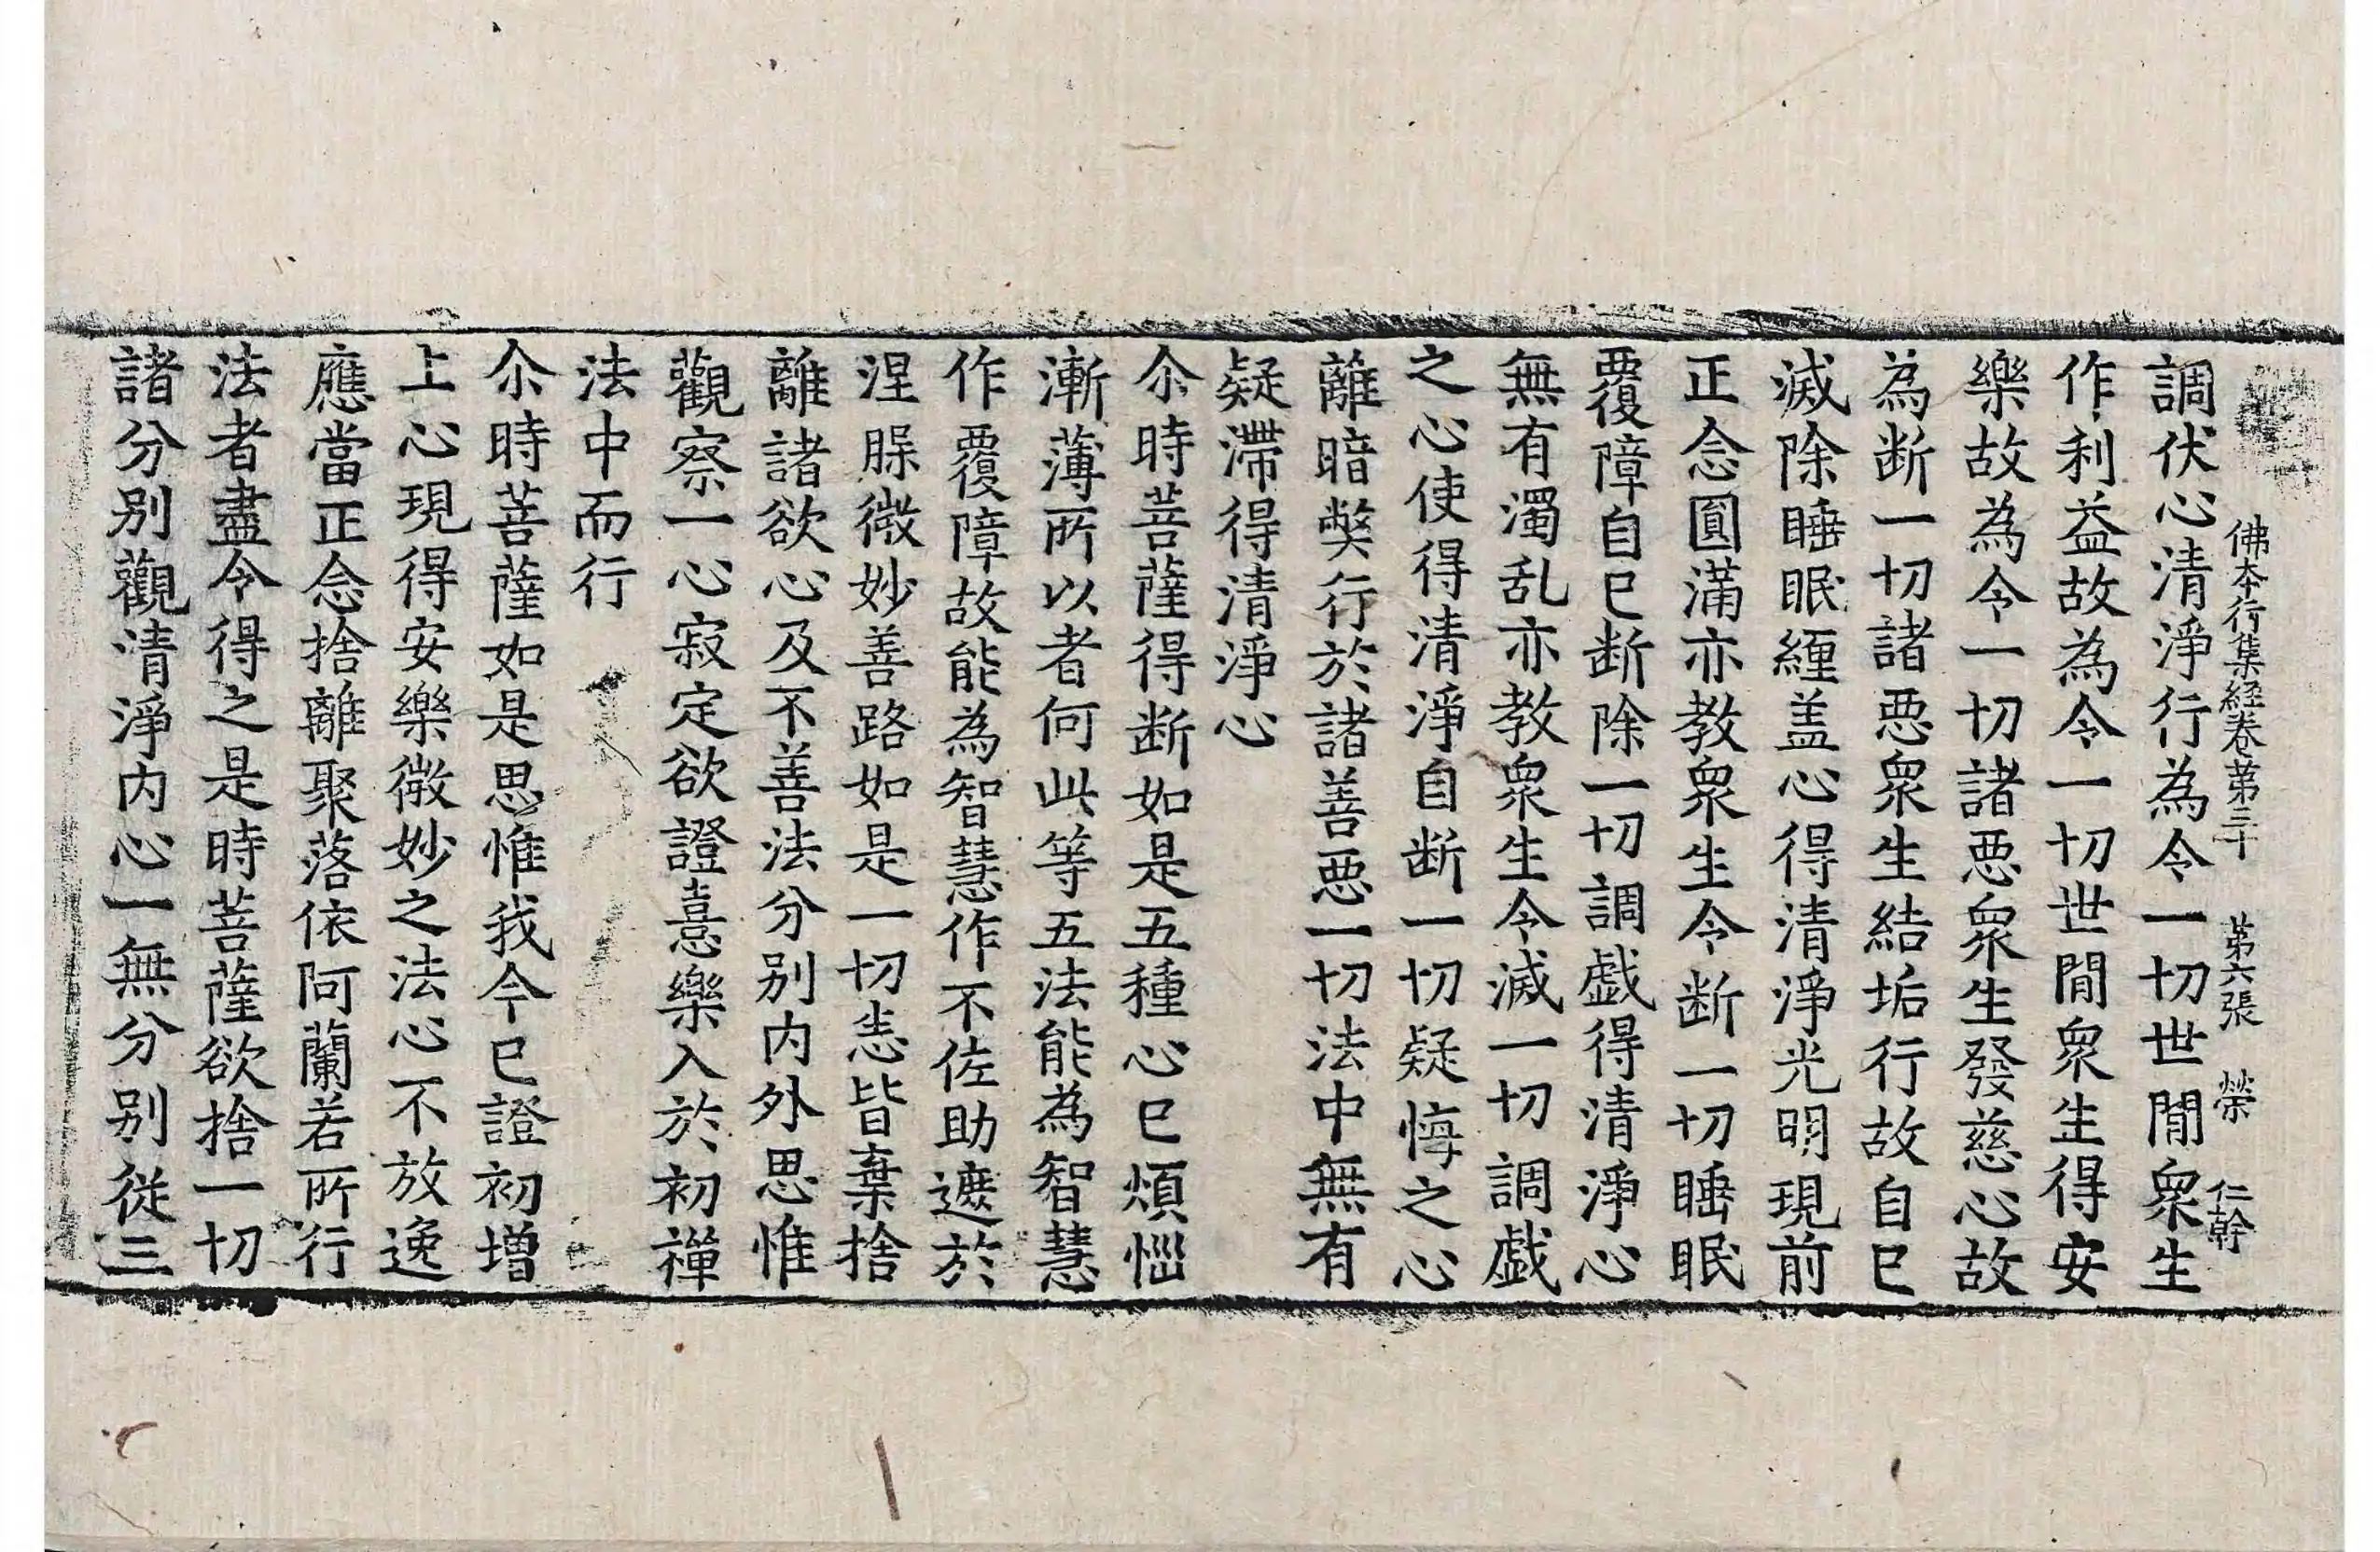 佛本行集經卷第三十 第六張 榮 仁幹
調伏心清淨行為令一切世間衆生
作利益故為令一切世間衆生得安
樂故為令一切諸惡衆生發慈心故
為断一切諸惡衆生結垢行故自已
滅除睡眠纏盖心得清淨光明現前
正念圓滿亦教衆生令断一切睡眠
覆障自已断除一切調戯得清淨心
無有濁乱亦教衆生令滅一切調戯
之心使得清淨自断一切疑悔之心
離暗獘行於諸善惡一切法中無有
疑滯得清淨心
尒時菩薩得断如是五種心已煩惱
漸薄所以者何此等五法能為智慧
作覆障故能為智慧作不佐助遮於
涅槃微妙善路如是一切悉皆棄捨
離諸欲心及不善法分別内外思惟
觀察一心寂定欲證憙樂入於初禪
法中而行
尒時菩薩如是思惟我今已證初增
上心現得安樂微妙之法心不放逸
應當正念捨離聚落依阿蘭若所行
法者盡令得之是時菩薩欲捨一切
諸分別觀清淨内心一無分别從三